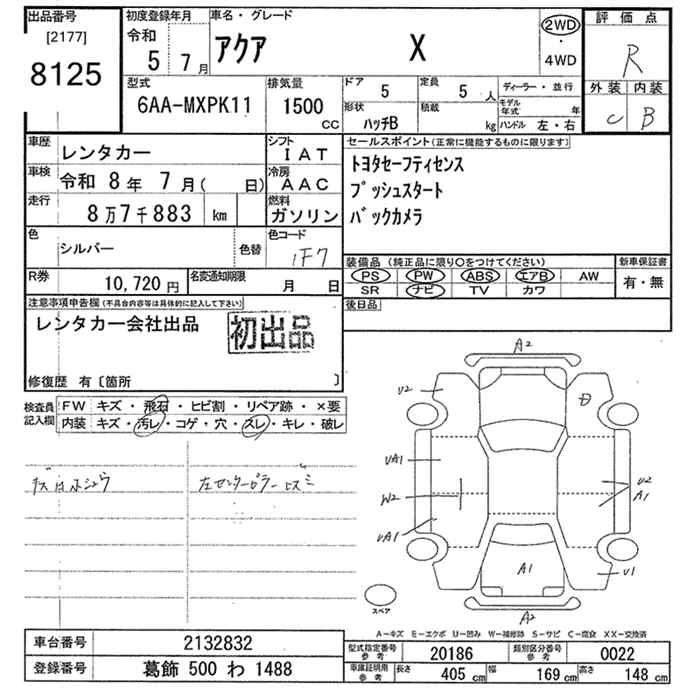 出品番号
[2177]
8125
初度登録年月
令和
5 7月
車名・グレード
アクア X
2WD
・
4WD
評価点
R
外装 内装
C B
型式
6AA-MXPK11
排気量
1500
CC
ドア 5
定員 5 人
ディーラー・並行
モデル年式 年
形状 ハッチB
積載 kg
ハンドル 左・右
車歴 レンタカー
シフト IAT
車検 令和 8年 7月( 日)
冷房 AAC
走行 8万7千883 km
燃料 ガソリン
色 シルバー 色替
色コード 1F7
R券 10,720円
名変通知期限 月 日
セールスポイント(正常に機能するものに限ります)
トヨタセーフティセンス
プッシュスタート
バックカメラ
装備品(純正品に限り○をつけてください) 新車保証書
PS PW ABS エアB AW 有・無
SR ナビ TV カワ
後日品
注意事項申告欄(不具合内容等は具体的に記入して下さい)
レンタカー会社出品 初出品
修復歴 有〔箇所 〕
検査員記入欄
FW キズ・飛石・ヒビ割・リペア跡・×要
内装 キズ・汚レ・コゲ・穴・スレ・キレ・破レ
左センターピラー
A2
U2
UA1
W2
UA1
U2
A1
A1
U1
A2
スペア
A-キズ E-エクボ U-凹み W-補修跡 S-サビ C-腐食 XX-交換済
車台番号 2132832
登録番号 葛飾 500 わ 1488
型式指定番号参考 20186 類別区分番号参考 0022
車庫証明用参考 長さ 405 cm 幅 169 cm 高さ 148 cm